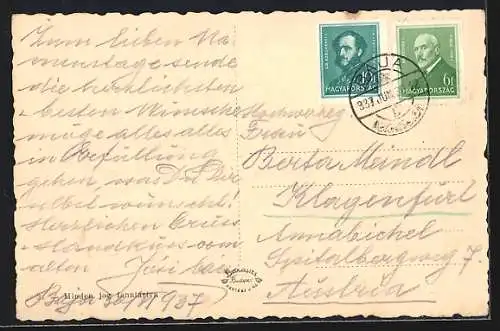 Zum lieben Na-
menstage sende
die herzlichsten
besten Wünsche
möge alles alles
in Erfüllung
gehen, was Du Dir
selbst wünscht!
Herzlichen Gruss
Handkuss vom
alten
Baja 30/VI 937
Minden jog fenntartva
MAGYARORSZÁG
MAGYARORSZÁG
6f
BAJA
937 JUN.
Hochwohlg
Frau
Berta Meindl
Klagenfurt
Annabichel
Spitalbergweg 7.
Austria
Budapest